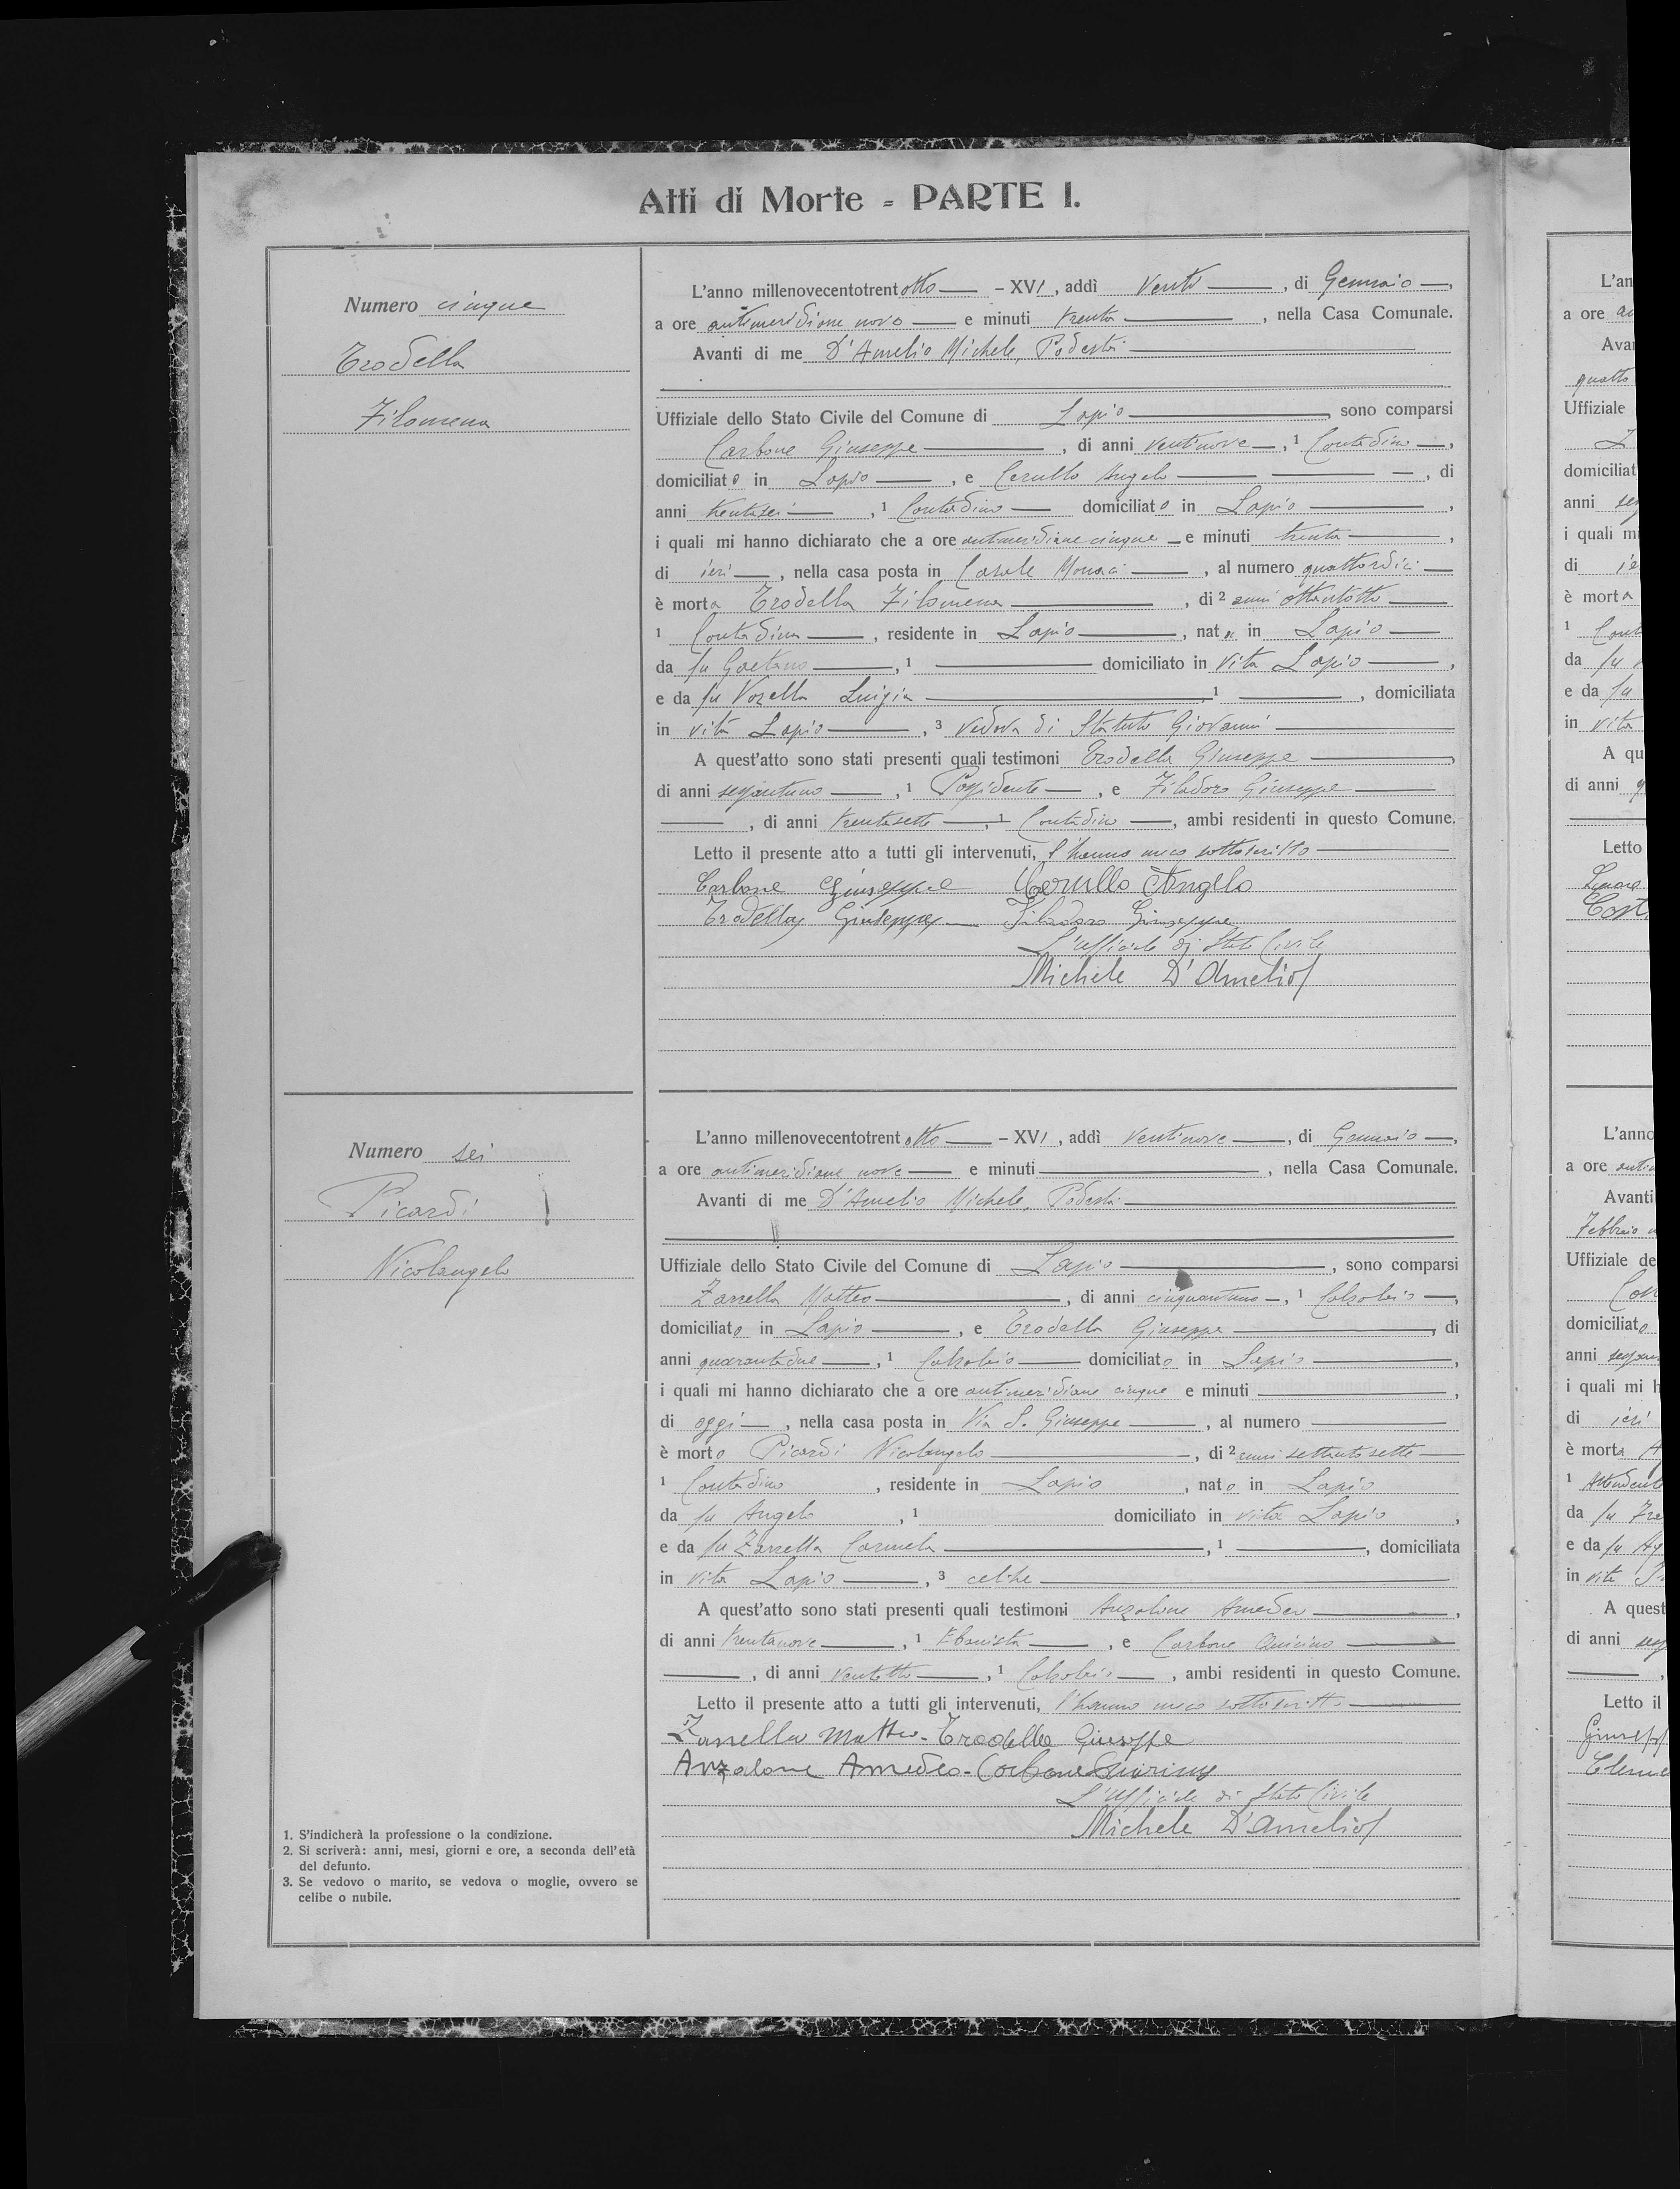 Atti di Morte - PARTE I.
Numero cinque
Trodella
Filomena
L'anno millenovecentotrentotto — – XVI, addì venti —, di Gennaio —,
a ore antimeridiane nove — e minuti trenta —, nella Casa Comunale.
Avanti di me D'Amelio Michele, Podestà —
Uffiziale dello Stato Civile del Comune di Lapio — sono comparsi
Carbone Giuseppe —, di anni ventinove —, 1 Contadino —,
domiciliato in Lapio —, e Cerullo Angelo —, di
anni trentasei —, 1 Contadino — domiciliato in Lapio —,
i quali mi hanno dichiarato che a ore antimeridiane cinque — e minuti trenta —,
di ieri —, nella casa posta in Casale Monaci —, al numero quattordici —
è morta Trodella Filomena —, di 2 anni ottantotto —
1 Contadina —, residente in Lapio —, nata in Lapio —
da fu Gaetano —, 1 — domiciliato in vita Lapio —,
e da fu Vozella Luigia —, 1 —, domiciliata
in vita Lapio —, 3 vedova di Statuto Giovanni —
A quest'atto sono stati presenti quali testimoni Trodella Giuseppe —,
di anni sessantuno —, 1 Possidente —, e Filadoro Giuseppe —
—, di anni trentasette —, 1 Contadino —, ambi residenti in questo Comune.
Letto il presente atto a tutti gli intervenuti, l'hanno meco sottoscritto —
Carbone Giuseppe Cerullo Angelo
Trodella Giuseppe — Filadoro Giuseppe
L'ufficiale di Stato Civile
Michele D'Amelio
Numero sei
Picardi
Nicolangelo
L'anno millenovecentotrentotto — – XVI, addì ventinove —, di Gennaio —,
a ore antimeridiane nove — e minuti —, nella Casa Comunale.
Avanti di me D'Amelio Michele, Podestà —
Uffiziale dello Stato Civile del Comune di Lapio —, sono comparsi
Zarrella Matteo —, di anni cinquantuno —, 1 Calzolaio —,
domiciliato in Lapio —, e Trodella Giuseppe —, di
anni quarantadue —, 1 Calzolaio — domiciliato in Lapio —,
i quali mi hanno dichiarato che a ore antimeridiane cinque e minuti —,
di oggi —, nella casa posta in Via S. Giuseppe —, al numero —
è morto Picardi Nicolangelo —, di 2 anni settantasette —
1 Contadino, residente in Lapio, nato in Lapio
da fu Angelo, 1 domiciliato in vita Lapio,
e da fu Zarrella Carmela —, 1 —, domiciliata
in vita Lapio —, 3 celibe —
A quest'atto sono stati presenti quali testimoni Anzalone Amedeo —,
di anni trentanove —, 1 Ebanista —, e Carbone Quirino —
—, di anni ventotto —, 1 Calzolaio —, ambi residenti in questo Comune.
Letto il presente atto a tutti gli intervenuti, l'hanno meco sottoscritto —
Zarrella Matteo - Trodella Giuseppe
Anzalone Amedeo - Carbone Quirino
L'Ufficiale di Stato Civile
Michele D'Amelio
1. S'indicherà la professione o la condizione.
2. Si scriverà: anni, mesi, giorni e ore, a seconda dell'età
del defunto.
3. Se vedovo o marito, se vedova o moglie, ovvero se
celibe o nubile.